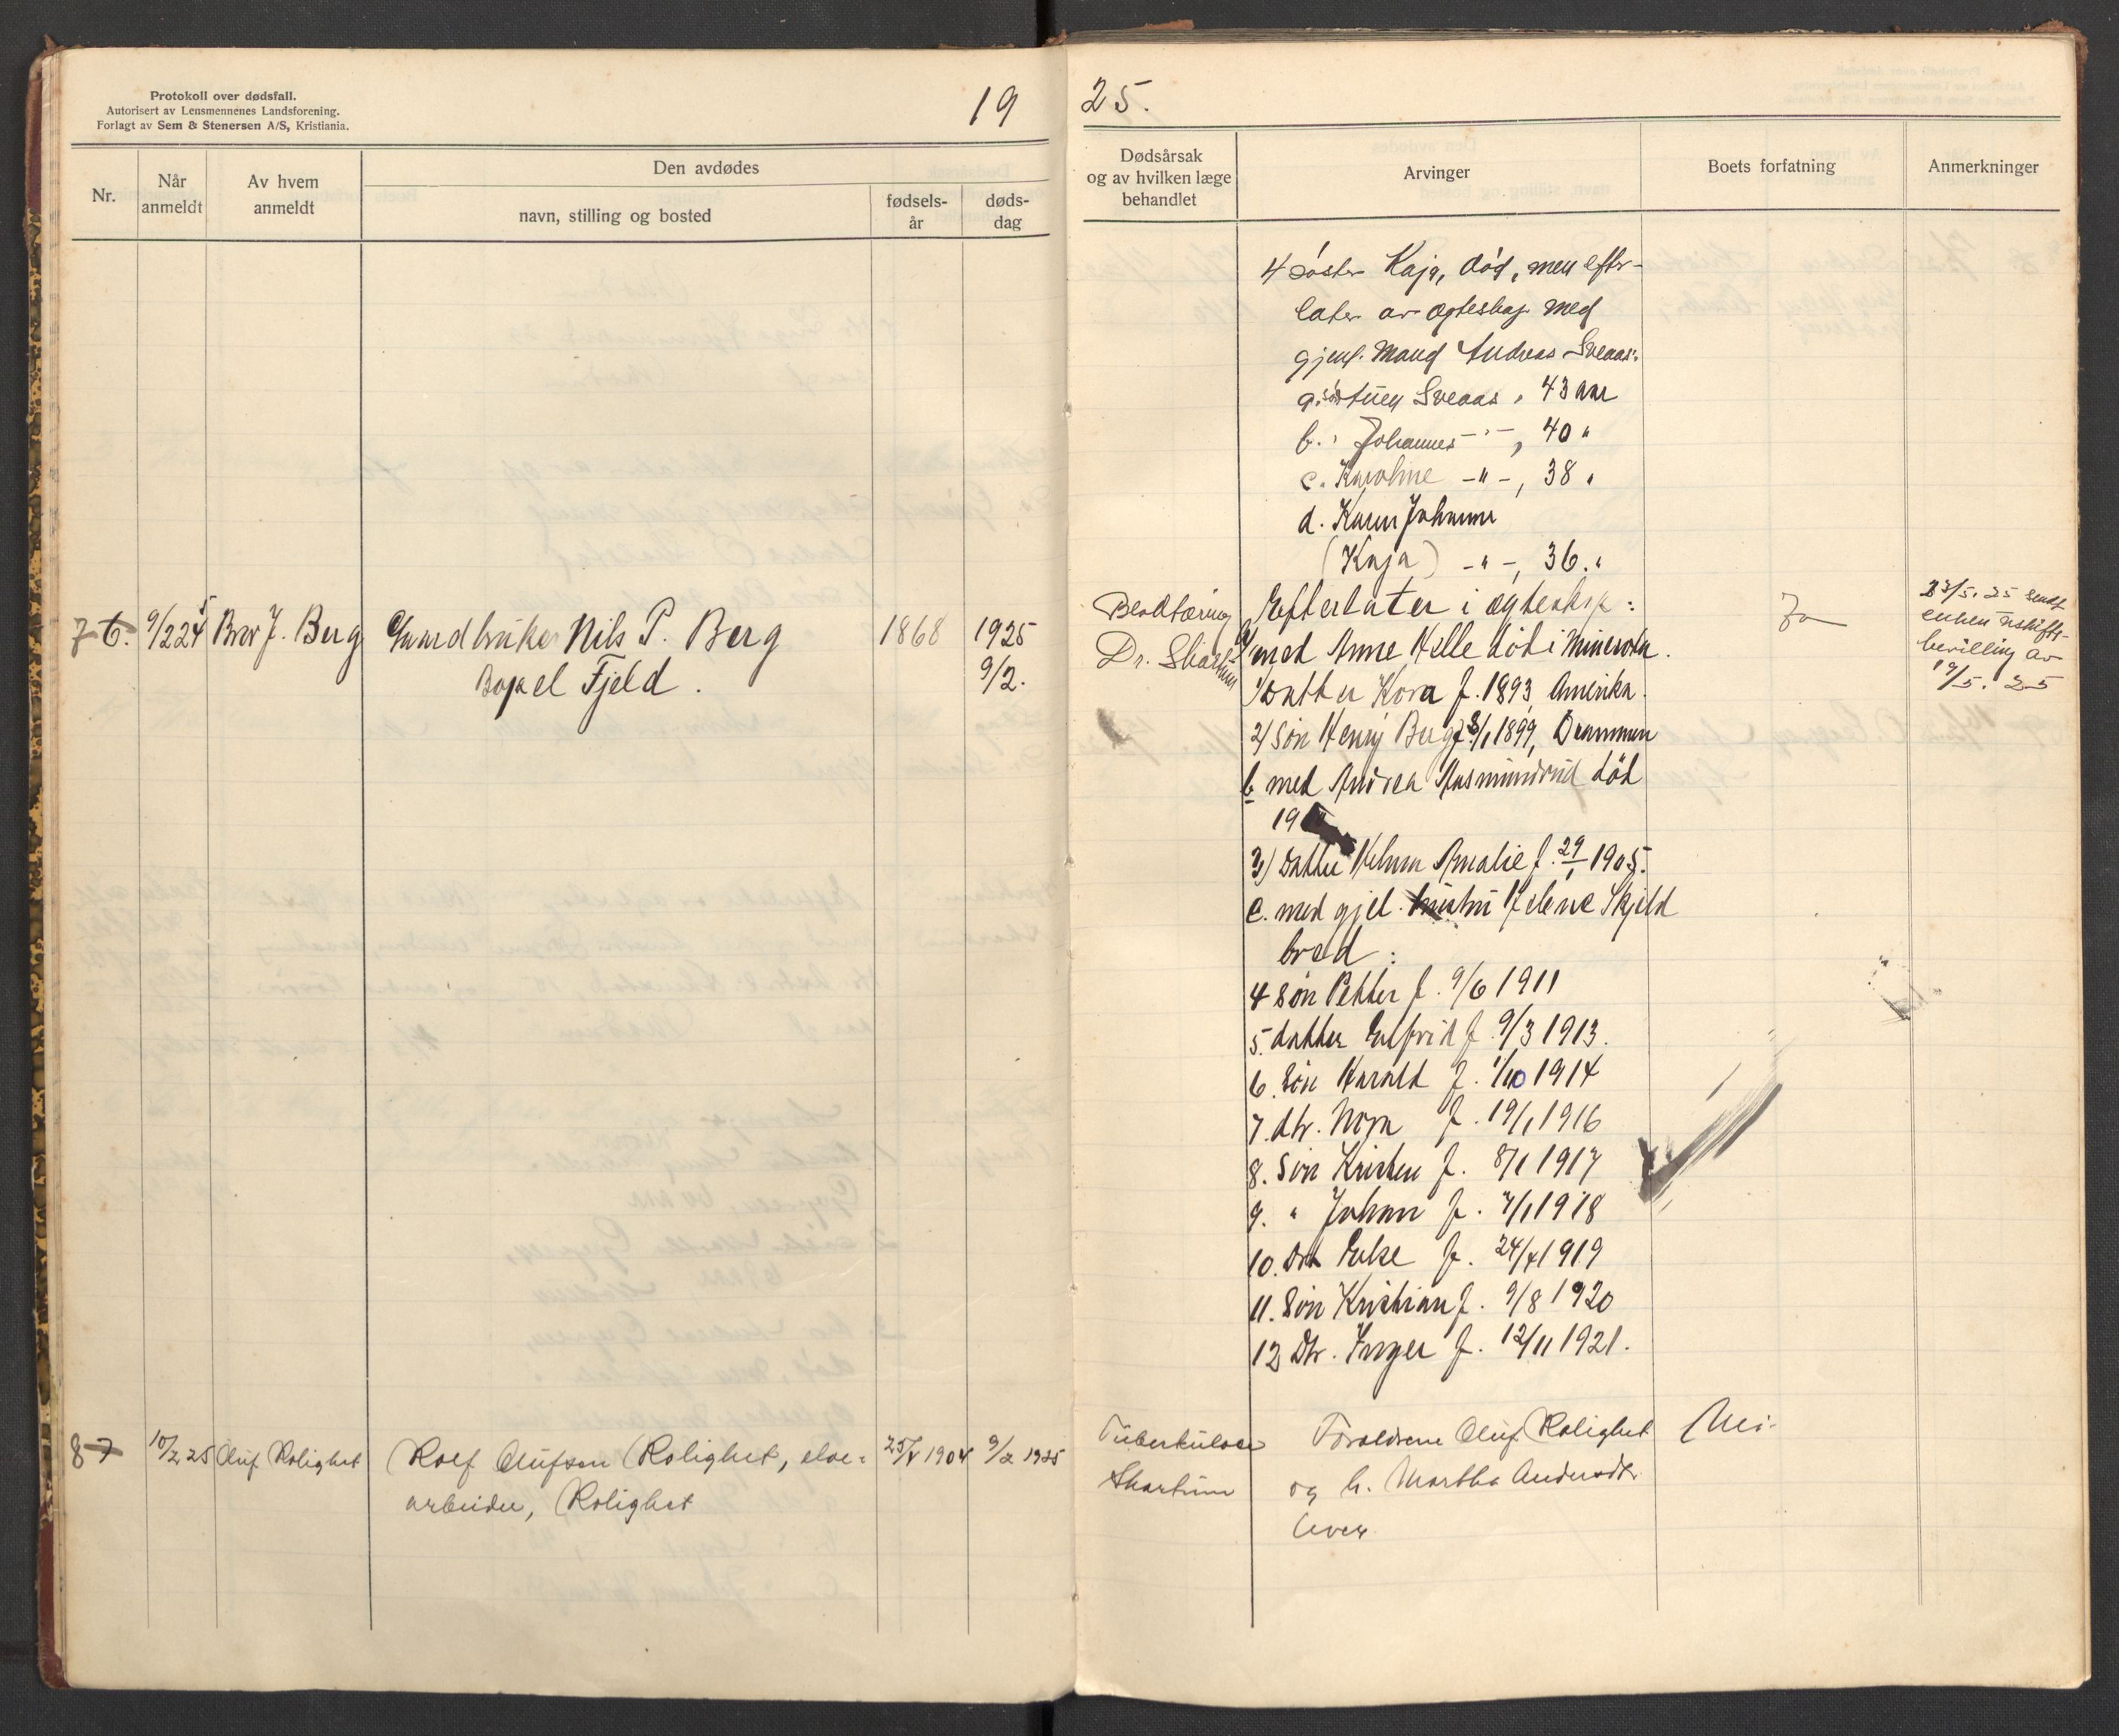 Protokoll over dødsfall.
Autorisert av Lensmennenes Landsforening.
Forlagt av Sem & Stenersen A/S, Kristiania.
19
Nr.
Når anmeldt
Av hvem anmeldt
Den avdødes
navn, stilling og bosted
fødsels-
år
døds-
dag
7 6. 9/2 25 Bror J. Berg Gaardbruker Nils P. Berg 1868 1925
Bopel Fjeld. 9/2.
8 7 10/2 25 Oluf Rolighet Rolf Olufsen Rolighet, elve- 25/5 1904 9/2 1925
arbeider, Rolighet
25.
Dødsårsak
og av hvilken læge
behandlet
Arvinger
Boets forfatning
Anmerkninger
4 søster Kaja, død, men efter-
later av egteskap med
gjenl. Mand Andreas Sveaas:
a. søn Sveaas, 43 aar
b. " Johannes - " -, 40 "
c. Karoline - " -, 38 "
d. Karen Johanne
(Kaja) - " -, 36. "
Blodtæring
Dr. Skartum
Efterlater i egteskap:
a/ med Anne Helle død i Minesota.
1) Datter Kora f. 1893, Amerika.
2) Søn Henry Berg f. 1899, Drammen
b med Andrea Aasmundrud død
19
3) Datter Helma Amalie f. 29/1 1905.
c. med gjel. Helene Skjeld
bred:
4 Søn Petter f. 9/6 1911
5. datter f. 9/3 1913.
6. Søn Harald f. 1/10 1914
7. dtr. Nora f. 19/1 1916
8. Søn Kristen f. 8/1 1917
9. " Johan f. 7/1 1918
10. Dtr Else f. 24/4 1919
11. Søn Kristian f. 9/8 1920
12 Dtr. Inger f. 12/11 1921.
Ja
23/5. 25 sendt
enken uskifte-
bevilling av
19/5. 25
Tuberkulose
Skartum
Forældrene Oluf Rolighet
og h. Martha Andersdtr.
lever